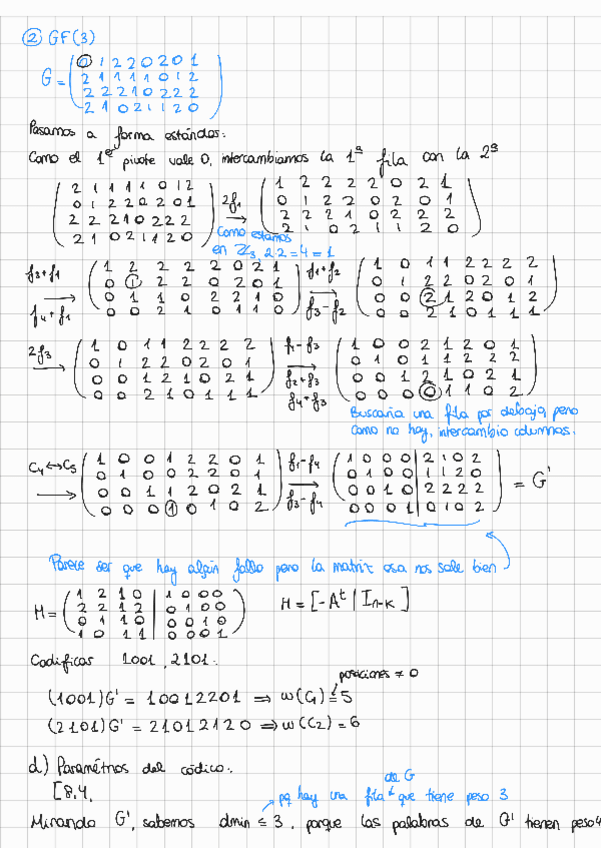 ② GF(3)
G = ( 0 1 2 2 0 2 0 1
2 1 1 1 1 0 1 2
2 2 2 1 0 2 2 2
2 1 0 2 1 1 2 0 )
Pasamos a forma estándar:
Como el 1er pivote vale 0, intercambiamos la 1ª fila con la 2ª
( 2 1 1 1 1 0 1 2
0 1 2 2 0 2 0 1
2 2 2 1 0 2 2 2
2 1 0 2 1 1 2 0 )
2f1 →
( 1 2 2 2 2 0 2 1
0 1 2 2 0 2 0 1
2 2 2 1 0 2 2 2
2 1 0 2 1 1 2 0 )
Como estamos
en Z3, 2·2=4=1
f3+f1
f4+f1
→
( 1 2 2 2 2 0 2 1
0 1 2 2 0 2 0 1
0 1 1 0 2 2 1 0
0 0 2 1 0 1 1 0 )
f1+f2
→
f3-f2
( 1 0 1 1 2 2 2 2
0 1 2 2 0 2 0 1
0 0 2 1 2 0 1 2
0 0 2 1 0 1 1 1 )
2f3 →
( 1 0 1 1 2 2 2 2
0 1 2 2 0 2 0 1
0 0 1 2 1 0 2 1
0 0 2 1 0 1 1 1 )
f1-f3
→
f2+f3
f4+f3
( 1 0 0 2 1 2 0 1
0 1 0 1 1 2 2 2
0 0 1 2 1 0 2 1
0 0 0 0 1 1 0 2 )
Buscaría una fila por debajo, pero
como no hay, intercambio columnas.
C4↔C5 →
( 1 0 0 1 2 2 0 1
0 1 0 0 2 2 0 1
0 0 1 1 2 0 2 1
0 0 0 1 0 1 0 2 )
f1-f4
→
f3-f4
( 1 0 0 0 | 2 1 0 2
0 1 0 0 | 1 1 2 0
0 0 1 0 | 2 2 2 2
0 0 0 1 | 0 1 0 2 ) = G'
Parece ser que hay algún fallo pero la matriz esa nos sale bien
H = ( 1 2 1 0 | 1 0 0 0
2 2 1 2 | 0 1 0 0
0 1 1 0 | 0 0 1 0
1 0 1 1 | 0 0 0 1 )
H = [-Aᵗ | In-k]
Codificar 1001, 2101.
posiciones ≠ 0
(1001)G' = 10012201 ⇒ w(C1) = 5
(2101)G' = 21012120 ⇒ w(C2) = 6
d) Parámetros del código:
[8,4,
de G
pq hay una fila que tiene peso 3
Mirando G', sabemos dmin ≤ 3, porque las palabras de G' tienen peso 4